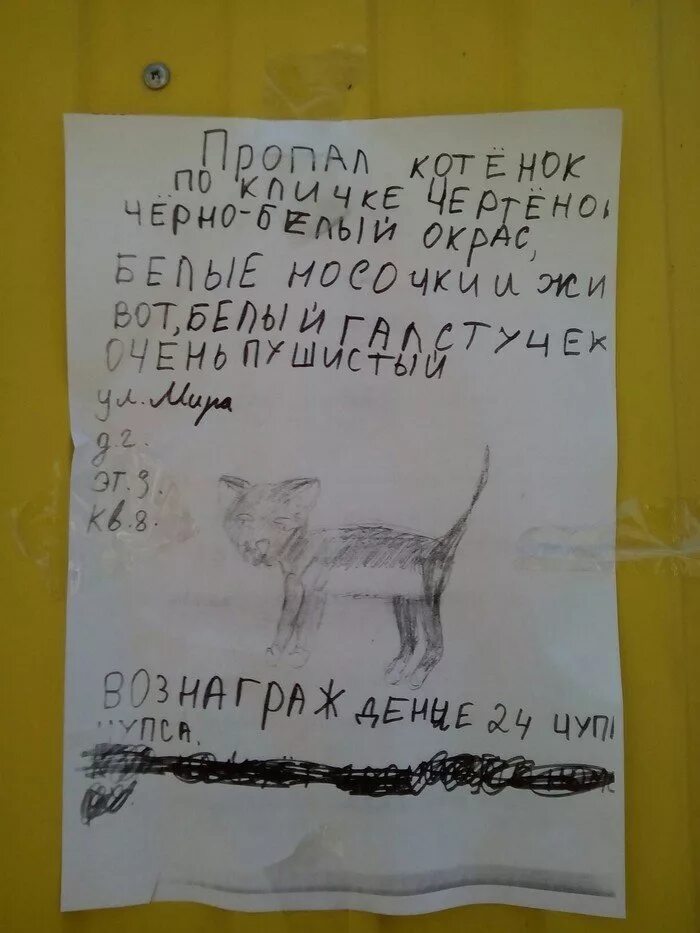 ПРОПАЛ КОТЁНОК
ПО КЛИЧКЕ ЧЕРТЁНО
ЧЁРНО-БЕЛЫЙ ОКРАС,
БЕЛЫЕ НОСОЧКИ И ЖИ
ВОТ, БЕЛЫЙ ГАЛСТУЧЕК
ОЧЕНЬ ПУШИСТЫЙ
ул. Мира
д. 2.
эт. 3.
кв. 8.
ВОЗНАГРАЖДЕНИЕ 24 ЧУП
ЧУПСА.